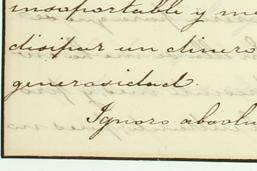 insoportable y me
disipar un dinero
generosidad.
Ignoro absolu